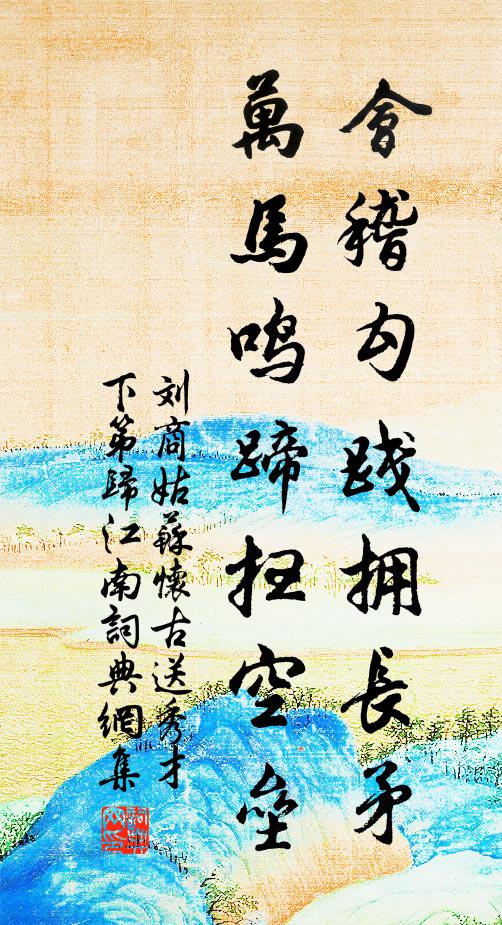 會稽勾践拥長矛
萬馬鳴蹄扫空壘
刘商姑蘇懷古送秀才
下第歸江南詞典網集